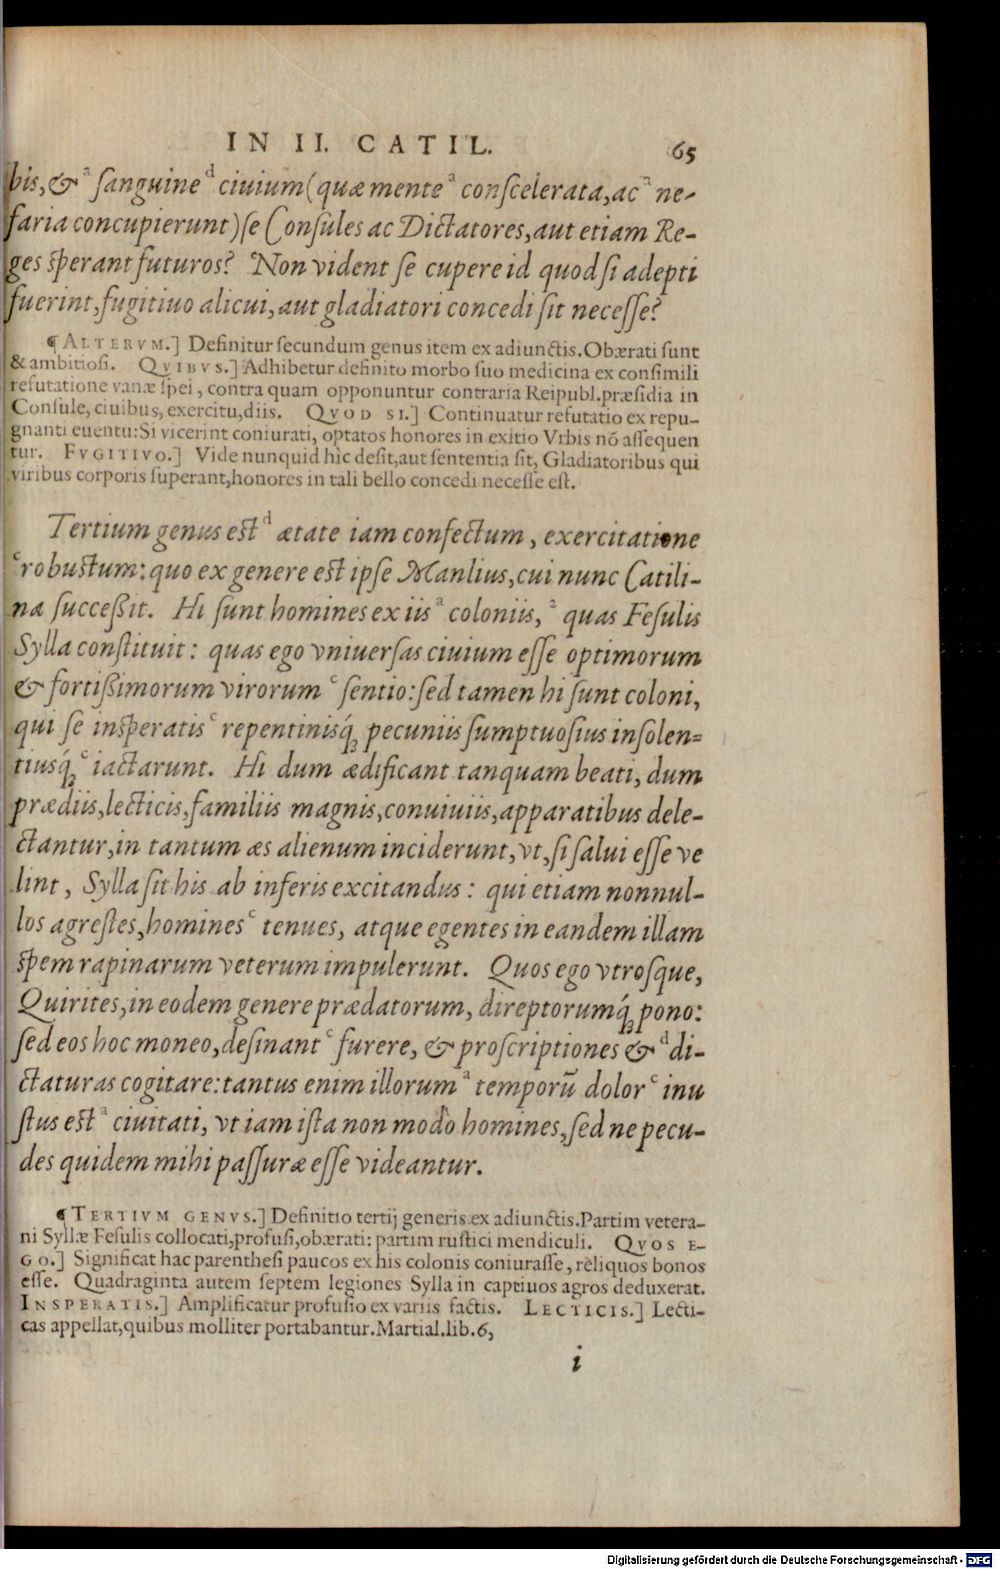 IN II. CATIL. 65
bis, &ᵃ sanguineᵈ ciuium (quæ menteᵃ conscelerata, acᵃ ne-
faria concupierunt) se Consules ac Dictatores, aut etiam Re-
ges sperant futuros? Non vident se cupere id quod si adepti
fuerint, fugitiuo alicui, aut gladiatori concedi sit necesse?
¶ ALTERVM.] Definitur secundum genus item ex adiunctis. Obærati sunt
& ambitiosi. QVIBVS.] Adhibetur definito morbo suo medicina ex consimili
refutatione vanæ spei, contra quam opponuntur contraria Reipubl. præsidia in
Consule, ciuibus, exercitu, diis. QVOD SI.] Continuatur refutatio ex repu-
gnanti euentu: Si vicerint coniurati, optatos honores in exitio Vrbis nō assequen
tur. FVGITIVO.] Vide nunquid hîc desit, aut sententia sit, Gladiatoribus qui
viribus corporis superant, honores in tali bello concedi necesse est.
Tertium genus estᵈ ætate iam confectum, exercitatione
ᶜrobustum: quo ex genere est ipse Manlius, cui nunc Catili-
na succeßit. Hi sunt homines ex iisᵃ coloniis,² quas Fesulis
Sylla constituit: quas ego vniuersas ciuium esse optimorum
& fortißimorum virorumᶜ sentio: sed tamen hi sunt coloni,
qui se insperatisᶜ repentinisq́; pecuniis sumptuosius insolen=
tiusq́;ᶜ iactarunt. Hi dum ædificant tanquam beati, dum
prædiis, lecticis, familiis magnis, conuiuiis, apparatibus dele-
ctantur, in tantum æs alienum inciderunt, vt, si salui esse ve
lint, Sylla sit his ab inferis excitandus: qui etiam nonnul-
los agrestes, hominesᶜ tenues, atque egentes in eandem illam
spem rapinarum veterum impulerunt. Quos ego vtrosque,
Quirites, in eodem genere prædatorum, direptorumq́; pono:
sed eos hoc moneo, desinantᶜ furere, & proscriptiones &ᵈ di-
ctaturas cogitare: tantus enim illorumᵃ temporū dolorᶜ inu
stus estᵃ ciuitati, vt iam ista non modò homines, sed ne pecu-
des quidem mihi passuræ esse videantur.
¶ TERTIVM GENVS.] Definitio tertij generis ex adiunctis. Partim vetera-
ni Syllæ Fesulis collocati, profusi, obærati: partim rustici mendiculi. QVOS E-
GO.] Significat hac parenthesi paucos ex his colonis coniurasse, reliquos bonos
esse. Quadraginta autem septem legiones Sylla in captiuos agros deduxerat.
INSPERATIS.] Amplificatur profusio ex variis factis. LECTICIS.] Lecti-
cas appellat, quibus molliter portabantur. Martial. lib. 6,
i
Digitalisierung gefördert durch die Deutsche Forschungsgemeinschaft - DFG